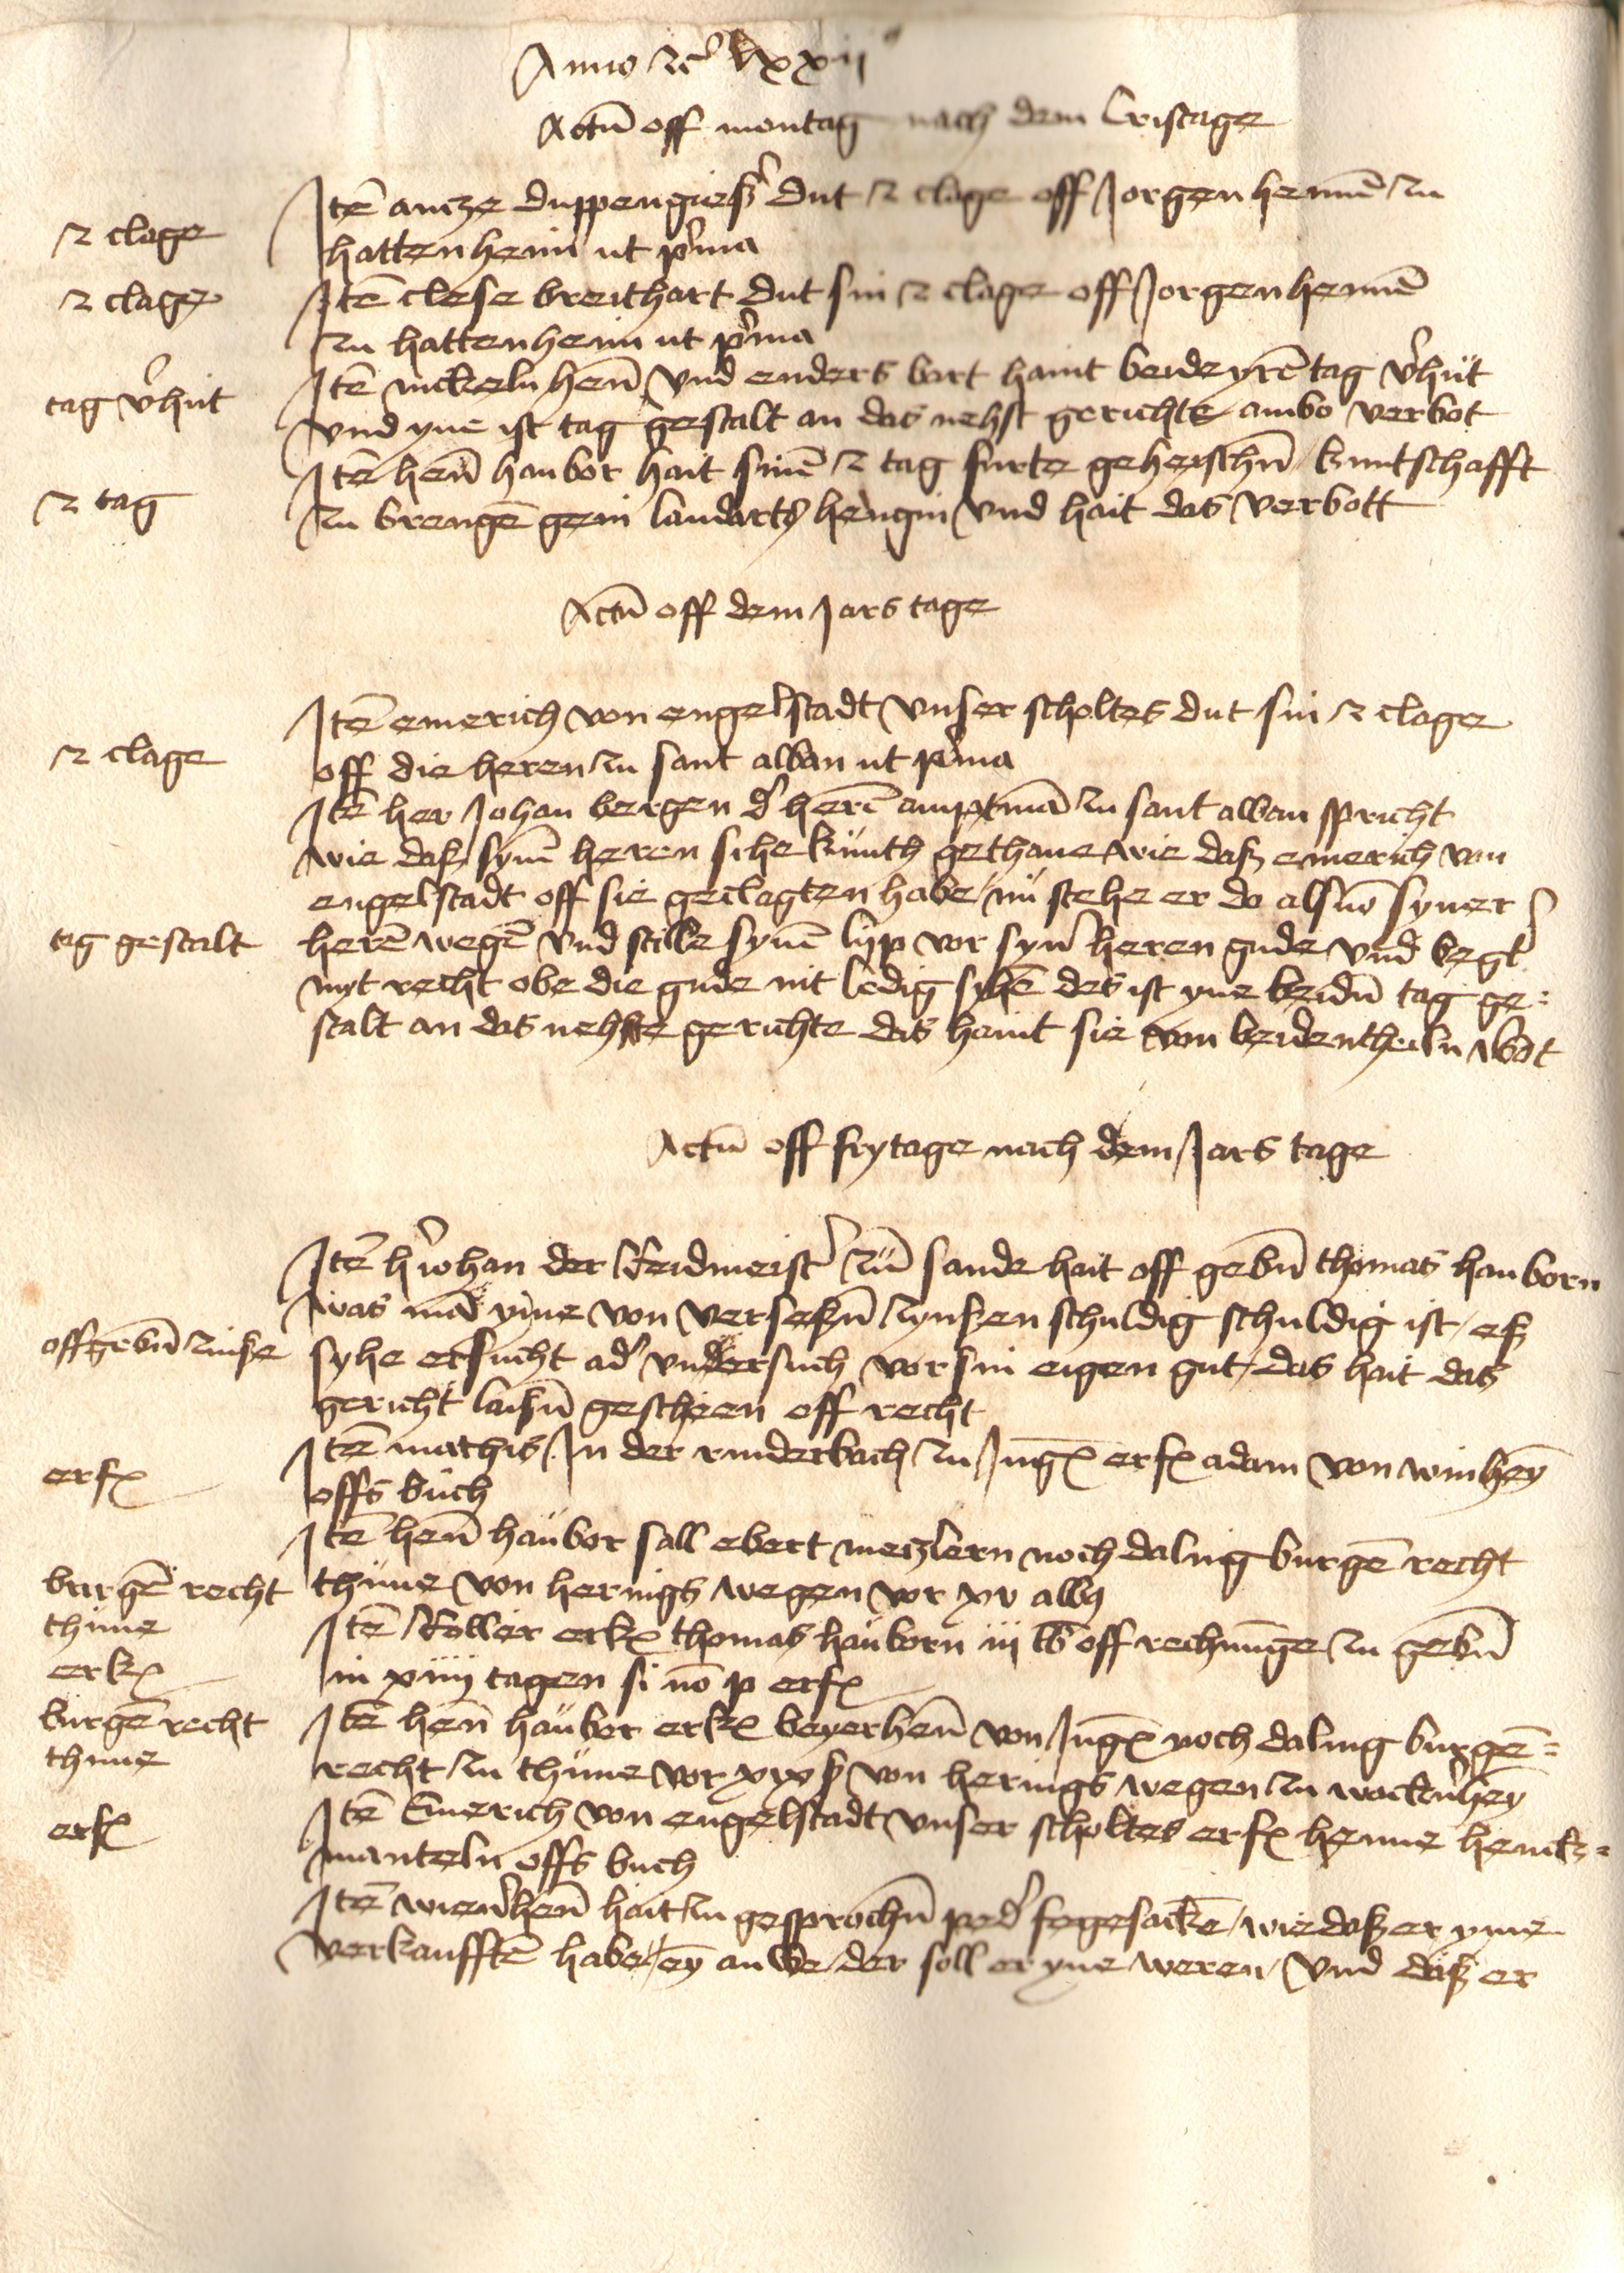 Anno 2c lxxij
Actū off montag nach dem Cristage
2 clage
Itē antze duppengieß' dut 2 clage off Jorgen hennē zu
hattenheim ut p'ma
2 clage
Itē clese breithart dut sin 2 clage off Jorgen hennē
zu hattenheim ut p'ma
tag v'hut
Itē nickeln hen̄ vnd enders bart haint beide yrē tag v'hut
vnd yne ist tag gestalt an das nehst gerichte ambo verbot
2 tag
Itē hen̄ haubor hait sinē 2 tag furte geheischn̄ / kuntschafft
zu brengē gein landarts hengin vnd hait das verbott
Actū off dem Jars tage
2 clage
Itē emerich von engelstadt vnser scholtes dut sin 2 clage
off die heren zu sant alban ut p'ma
Itē her Johan bergen d' herē amptmā zu sant alban spricht
wie daß synē heren sihe kunth gethane wie daß emerich von
engelstadt off sie geclagten habe / nu stehe er do als vō syner
tag gestalt
herē wegē vnd stille synē lyp vor syn' heren gude vnd begt
myt recht obe die gude nit ledig syhē des ist yne beidn̄ tag ge=
stalt an das nehste gerichte das haint sie von beidentheiln v'bot
Actū off frytage nach dem Jars tage
Itē h' johan der keidmeist' zū sande hait off gebn̄ thomas hauborn
was mā yme von verseßn̄ zynßen schuldig schuldig ist / eß
offgebn̄ zinße
syhe ersucht ad' vndersuch vor sin eigen gut / das hait das
gericht laißn̄ gescheen off recht
erf
Itē mathis In der rinderbach zu Ing erf adam von winhey
offs buch
Itē hen̄ haubor sall ebert metzlern noch daling burgē recht
burgē recht
thune
thune von hernigs wegen vor xv albꝫ
erk
Itē koller erk thomas hauborn iij lb off rechnūge zu gebn̄
in xiiij tagen si nō p erf
burgē recht
thune
Itē hen̄ haubor erk beyerhen̄ von Ing noch daling burgē=
recht zu thune vor xxx ß von herings wegen zu wackernhey
erf
Itē Emerich von engelstadt vnser scholtes erf henne henck=
manteln offs buch
Itē wien'hen̄ hait zu gesprochn̄ ped' fegesacke / wie daß er yme
verkaufften habe ey auwe / der soll er yne weren / vnd daß er